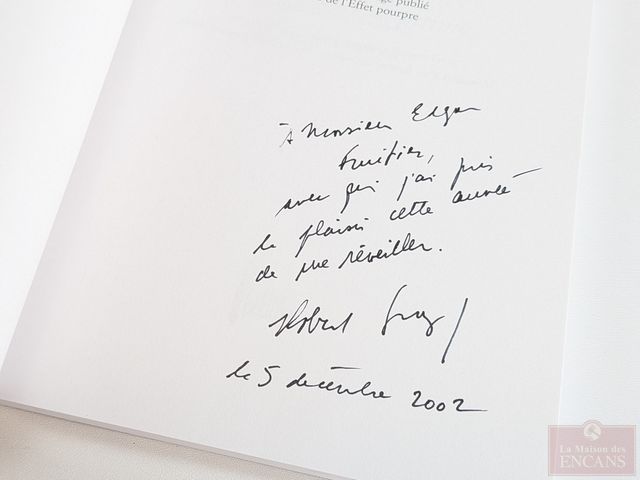 ge publié
de l'Effet pourpre
À Monsieur Edgar
Fruitier,
avec qui j'ai pris
le plaisir cette année
de me réveiller.
Robert
le 5 décembre 2002
La Maison des
ENCANS